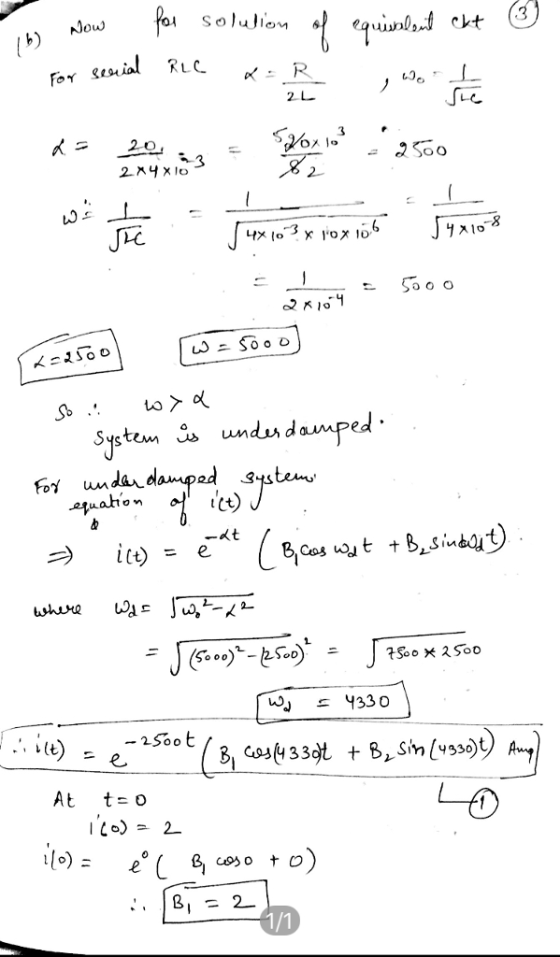 (b) Now for solution of equivalent ckt ③
For serial RLC α = R/2L , ω₀ = 1/√LC
α = 20/(2×4×10⁻³) = ⁵20×10³/8 2 = 2500
ω = 1/√LC = 1/√(4×10⁻³ × 10×10⁻⁶) = 1/√(4×10⁻⁸)
= 1/(2×10⁻⁴) = 5000
α = 2500 ω = 5000
So ∴ ω > α
System is underdamped.
For underdamped system
equation of i(t)
⇒ i(t) = e^(-αt) (B₁ cos ωdt + B₂ sin ωdt)
where ωd = √(ω₀² - α²)
= √((5000)² - (2500)²) = √(7500 × 2500)
ωd = 4330
∴ i(t) = e^(-2500t) (B₁ cos(4330)t + B₂ sin(4330)t) Amp
①
At t = 0
i(0) = 2
i(0) = e⁰ ( B₁ cos0 + 0)
∴ B₁ = 2
1/1